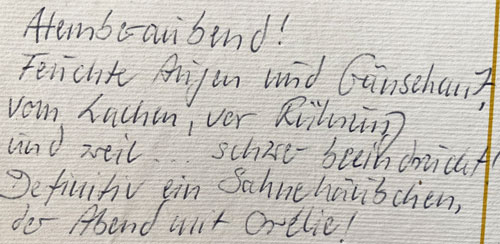 Atemberaubend!
Feuchte Augen und Gänsehaut,
vom Lachen, vor Rührung
und weil... schwer beeindruckt!
Definitiv ein Sahnehäubchen,
der Abend mit Ortlie!